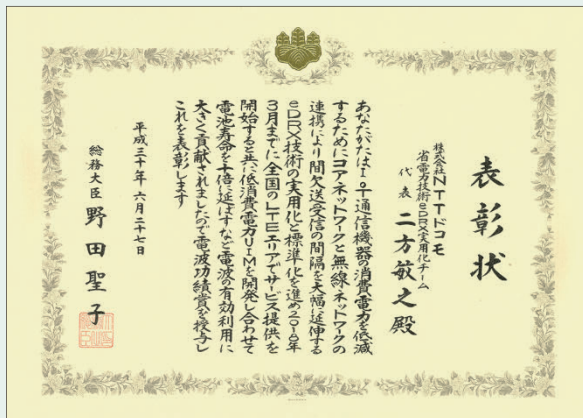 表彰状
株式会社NTTドコモ
省電力技術eDRX実用化チーム
代表 二方敏之殿
あなたがたはIoT通信機器の消費電力を低減
するためにコアネットワークと無線ネットワークの
連携により間欠送受信の間隔を大幅に延伸する
eDRX技術の実用化と標準化を進め2018年
3月までに全国のLTEエリアでサービス提供を
開始すると共に低消費電力UIMを開発し合わせて
電池寿命を十倍に延ばすなど電波の有効利用に
大きく貢献されましたので電波功績賞を授与し
これを表彰します
平成三十年六月二十七日
総務大臣 野田聖子